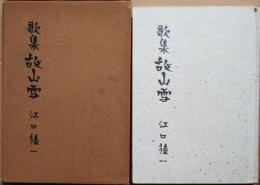 歌集 故山雪
江口榛一
歌集 故山雪
江口榛一